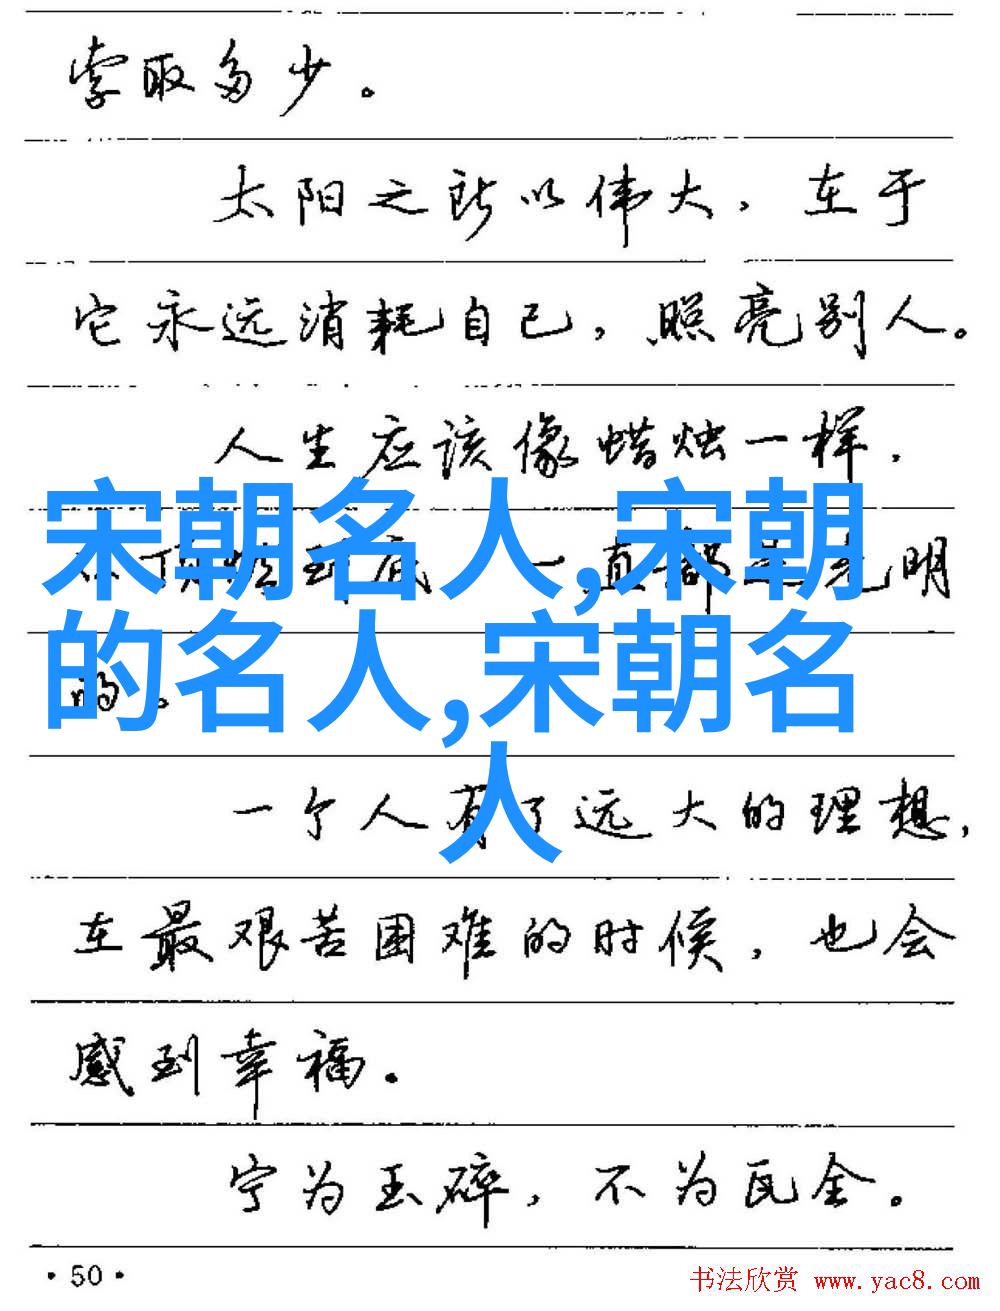 索取多少。
太阳之所以伟大，在于
它永远消耗自己，照亮别人。
人生应该像蜡烛一样，
从顶燃到底，一直都是光明
的。
宋朝名人,宋朝
的名人,宋朝名
人
一个人有了远大的理想，
在最艰苦困难的时候，也会
感到幸福。
宁为玉碎，不为瓦全。
·50·
书法欣赏 www.yac8.com